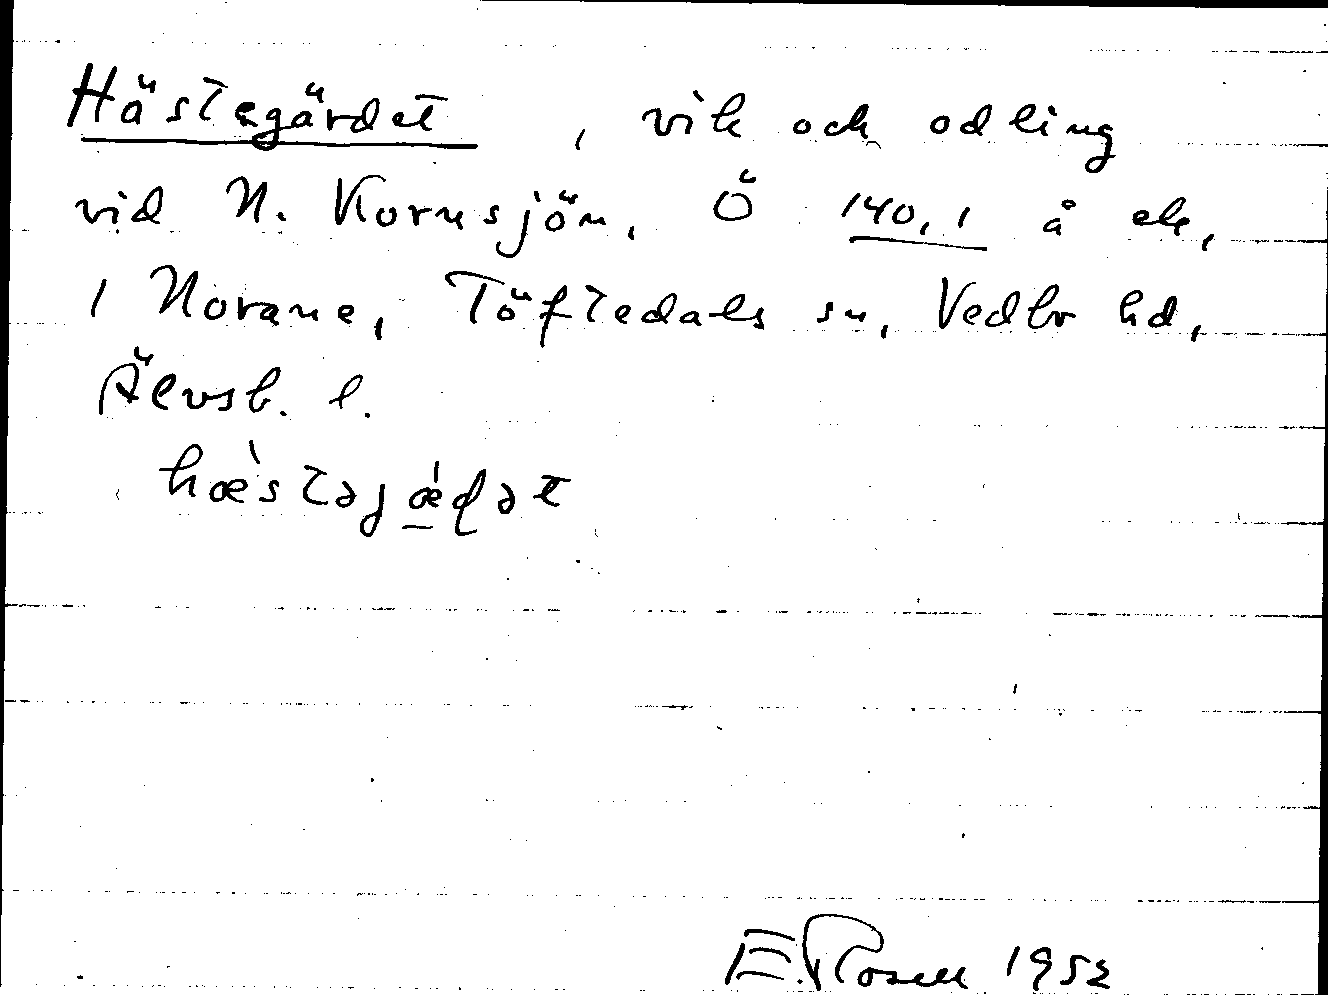 Hästegärdet, vik och odling
vid N. Kornsjön, Ö 140,1 å ek,
1 Norane, Töftedals sn, Vedbo hd,
Älvsb. l.
hæ̀stəjǽḍət
E. Rosell 1952